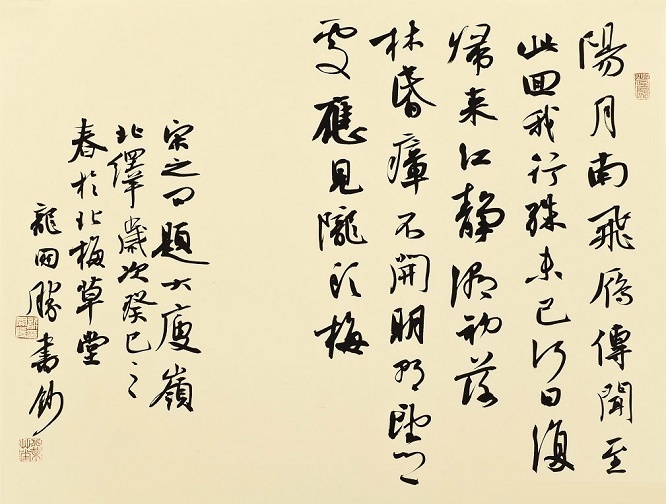 陽月南飛鴈傳聞至
此回我行殊未已何日復
歸来江静潮初落
林昏瘴不開明朝望鄉
處應見隴頭梅
宋之问題大庾嶺
北驛歲次癸巳之
春於北梅草堂
龍開勝書鈔